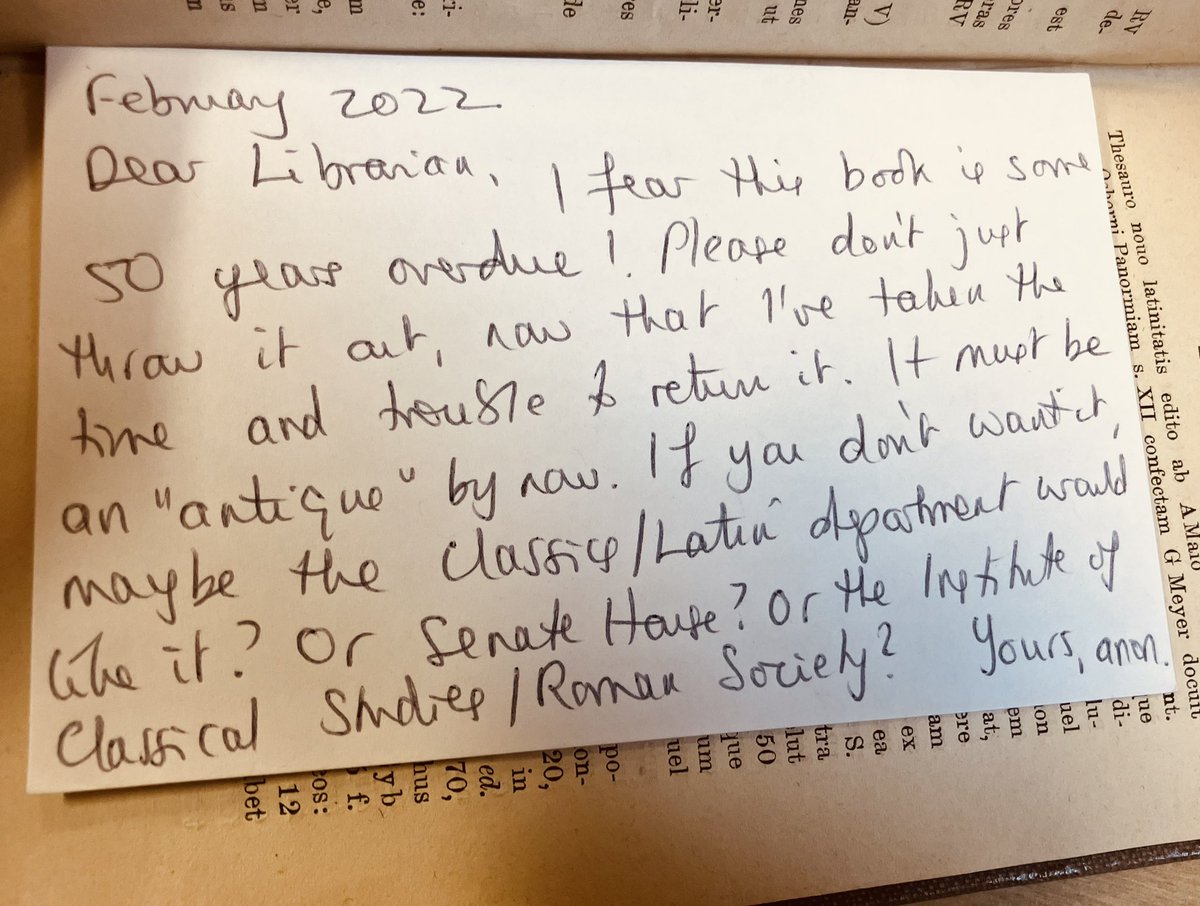 February 2022.
Dear Librarian, I fear this book is some
50 years overdue! Please don't just
throw it out, now that I've taken the
time and trouble to return it. It must be
an "antique" by now. If you don't want it,
maybe the Classics/Latin department would
like it? Or Senate House? Or the Institute of
Classical Studies/Roman Society? Yours, anon.
Thesauro nouo latinitatis edito ab A Maio
Panormiam s. XII confectam G Meyer docuit